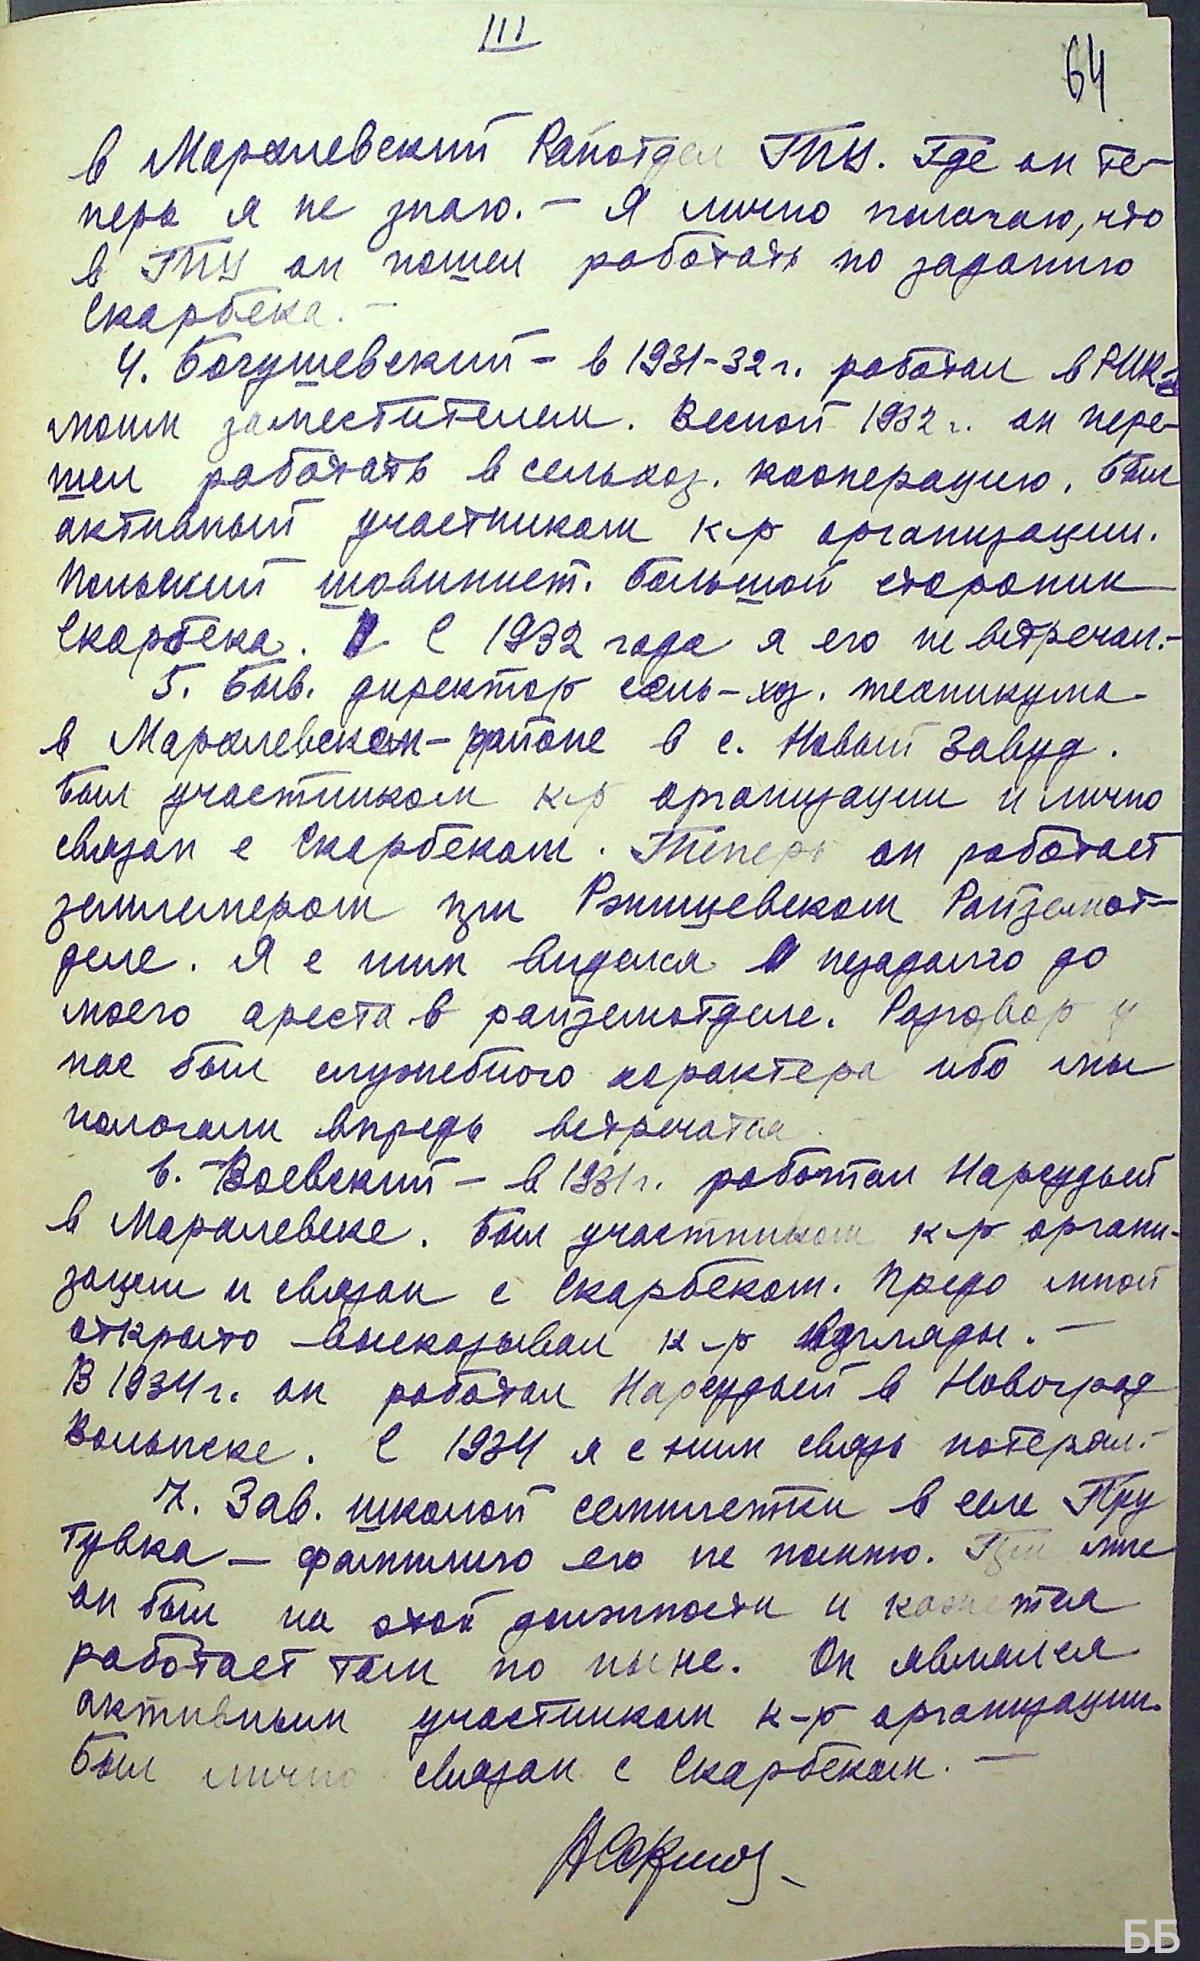 III
64
в Мархлевский Райотдел ГПУ. Где он те-
перь я не знаю. – Я лично полагаю, что
в ГПУ он пошел работать по заданию
Скарбека. –
4. Богушевский – в 1931-32 г. работал в РИК-е
моим заместителем. Весной 1932 г. он пере-
шел работать в сельхоз. кооперацию. Был
активный участником к-р организации.
Польский шовинист. Большой стороник
Скарбека. С 1932 года я его не встречал. –
5. Быв. директор сель-хоз. техникума
в Мархлевском районе в с. Новый Завод.
Был участником к-р организации и лично
связан с Скарбеком. Теперь он работает
землемером при Ржищевском Райземот-
деле. Я с ним виделся незадолго до
моего ареста в райземотделе. Разговор у
нас был служебного характера ибо мы
пологали впредь встречатся.
6. Воевский – в 1931 г. работал Нарсудьей
в Мархлевске. Был участником к-р органи-
зации и связан с Скарбеком. Предо мной
открыто высказывал к-р взгляды. –
В 1934 г. он работал Нарсудьей в Новоград
Волынске. С 1934 я с ним связь потерял. –
7. Зав. школой семилетки в селе Пру
тувка – фамилию его не помню. При мне
он был на этой должности и кажется
работает там по ныне. Он являлся
активным участником к-р организации.
Был лично связан с Скарбеком. –
ББ